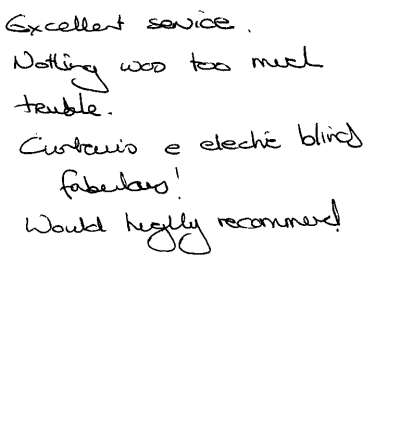 Excellent service.
Nothing was too much
trouble.
Curtains e electric blinds
fabulous!
Would highly recommend!